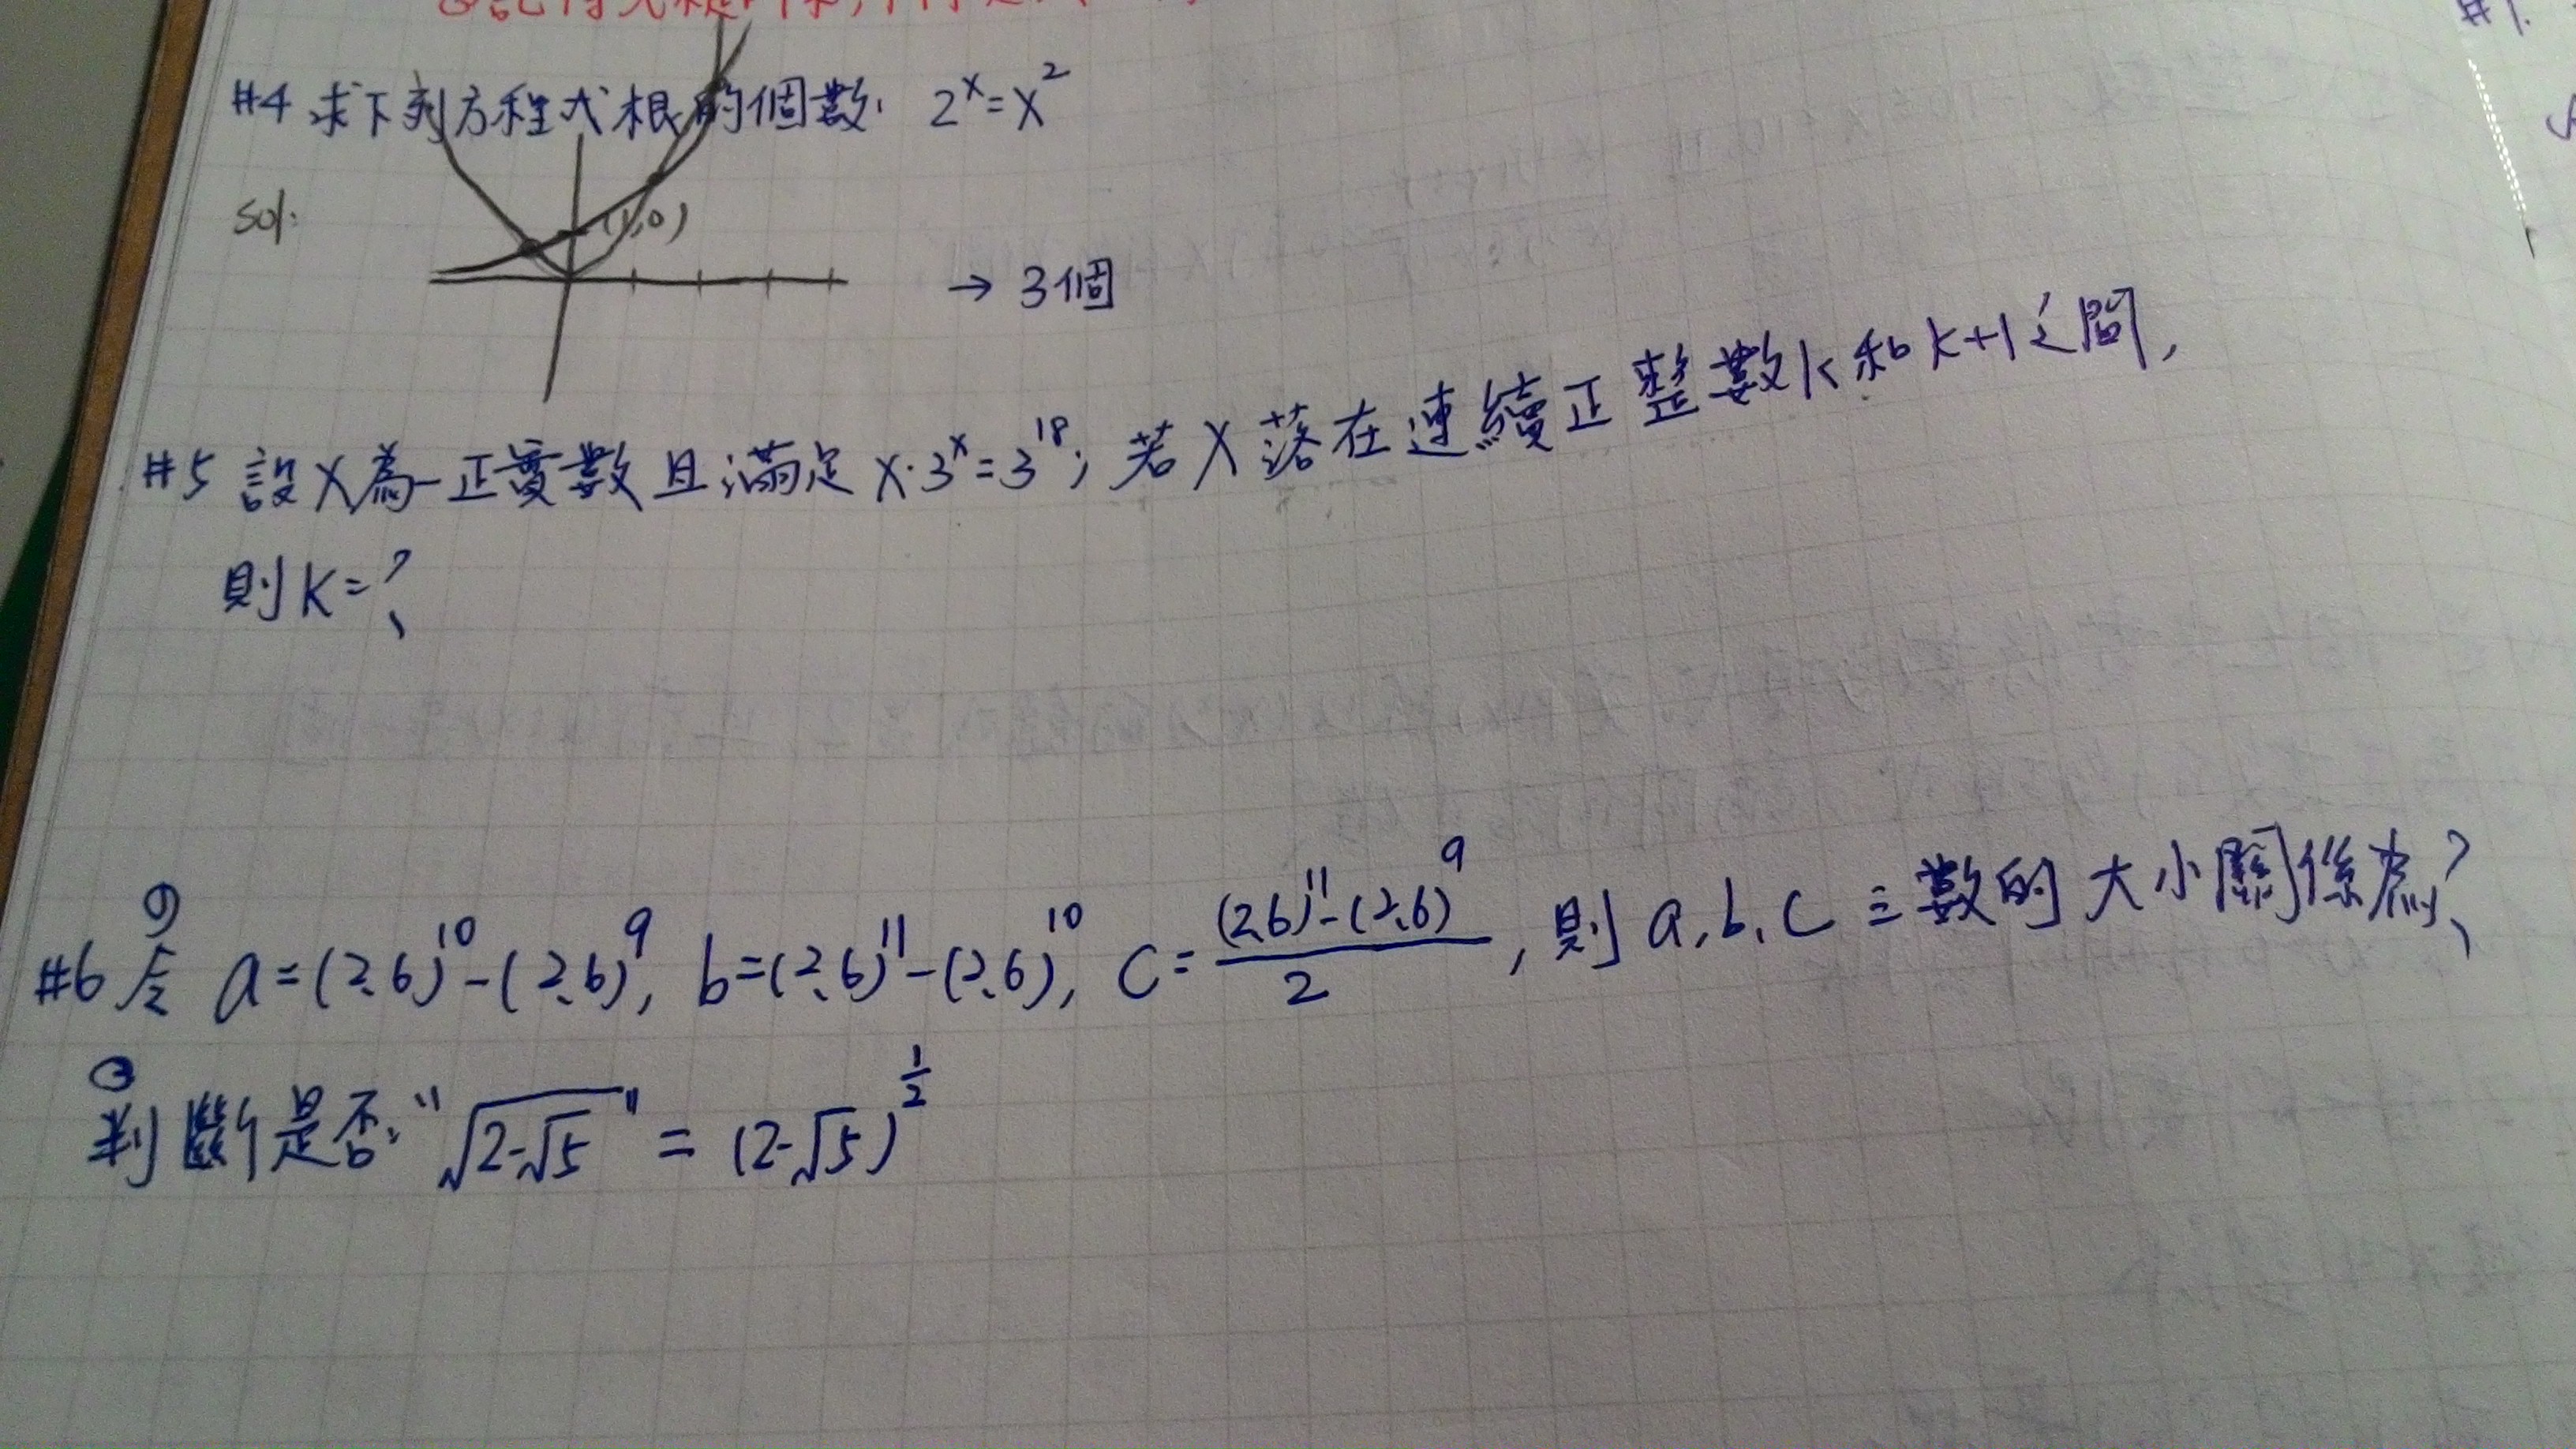 #4 求下列方程式根的個數. 2^x = x^2
sol:
(1,0)
→ 3個
#5 設X為一正實數且滿足 x·3^x = 3^18; 若X落在連續正整數k和k+1之間,
則K=?
#6 ① 令 a=(2.6)^10-(2.6)^9, b=(2.6)^11-(2.6)^10, c=\frac{(2.6)^11-(2.6)^9}{2}, 則a,b,c三數的大小關係為?
② 判斷是否: "√(2-√5)" = (2-√5)^{1/2}
#1.